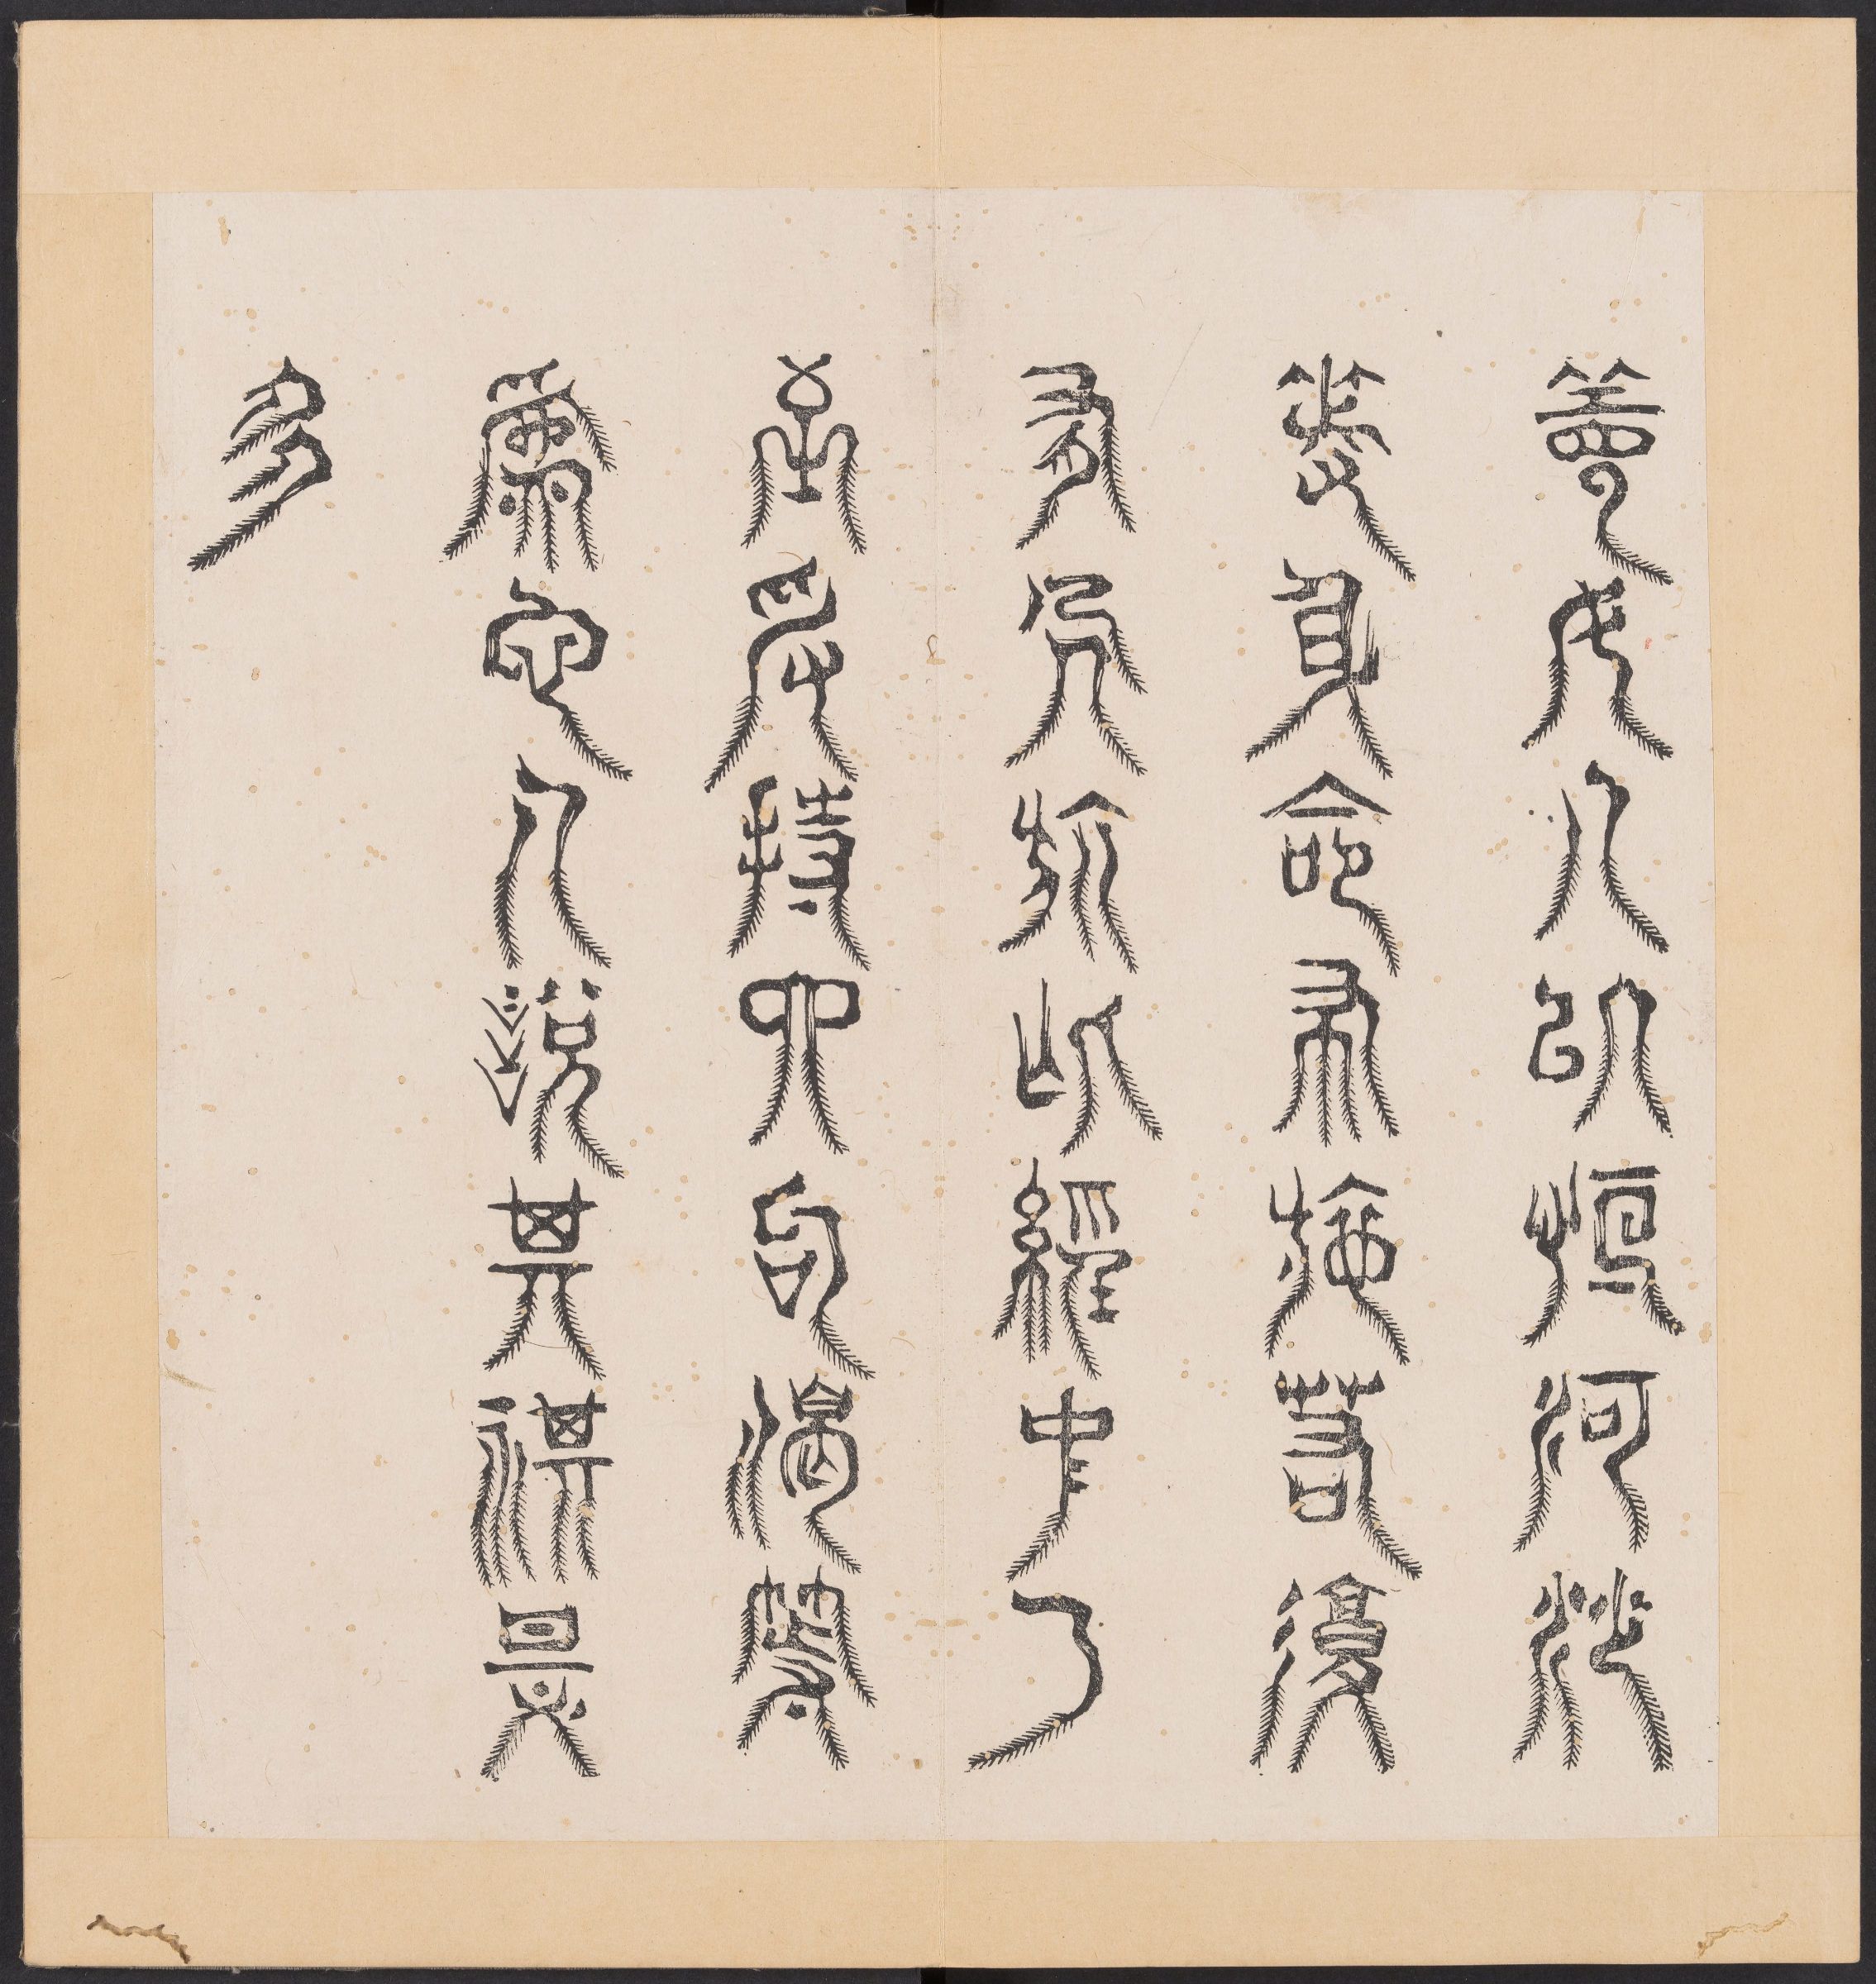 善女人以恆河沙
等身命布施若復
有人於此經中乃
至受持四句偈等
為他人說其福甚
多